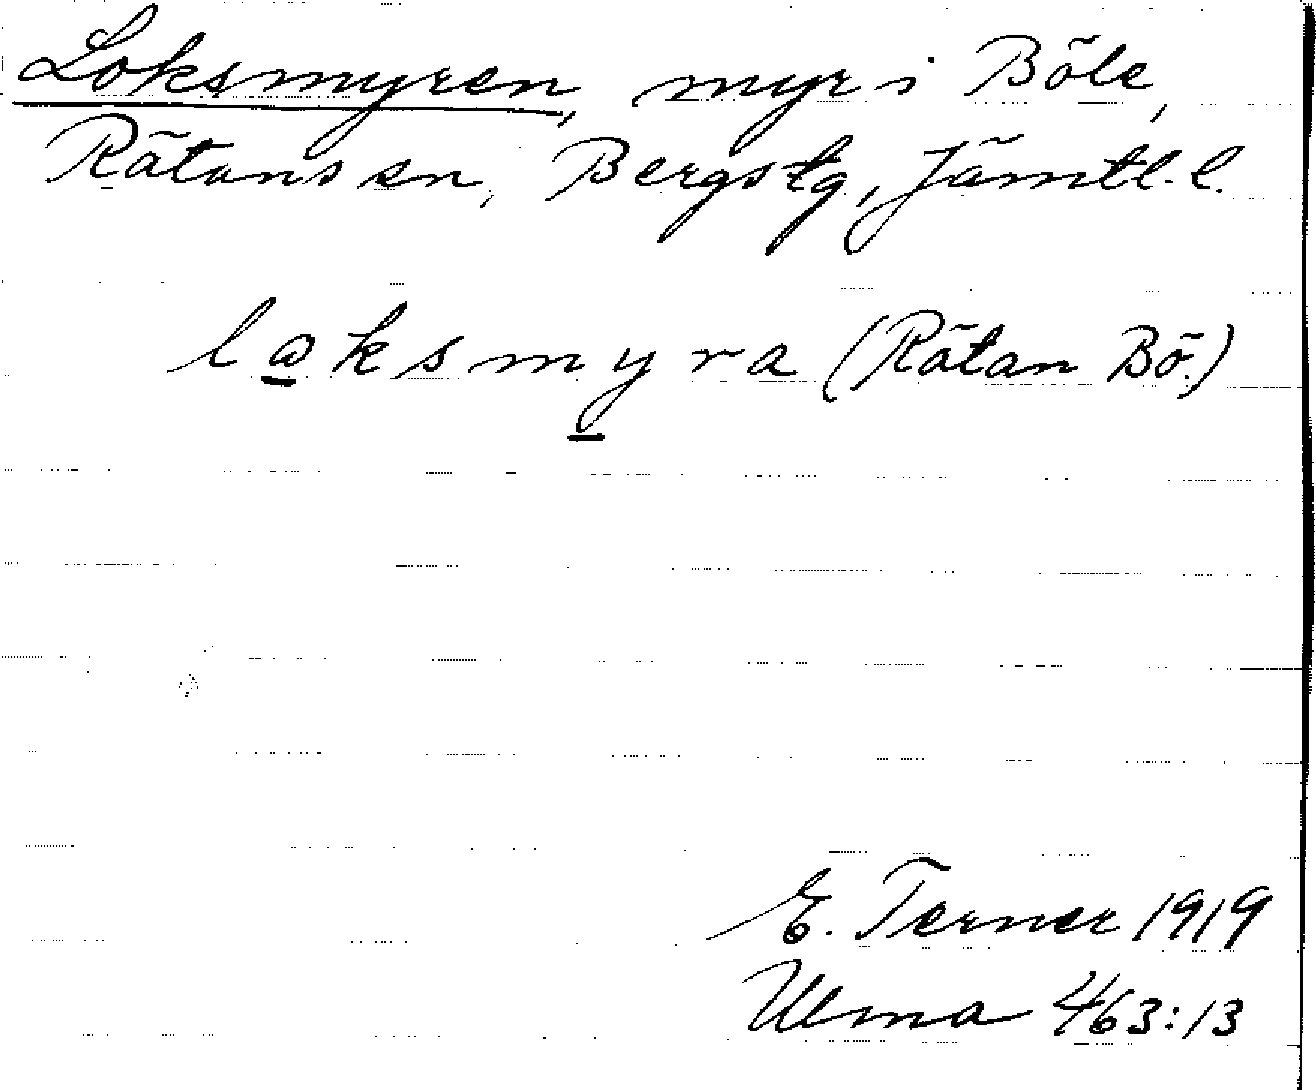 Loksmyren, myr i Böle,
Rätans sn, Bergs tg, Jämtl. l.
laksmyra (Rätan Bö.)
E. Terner 1919
Ulma 463:13